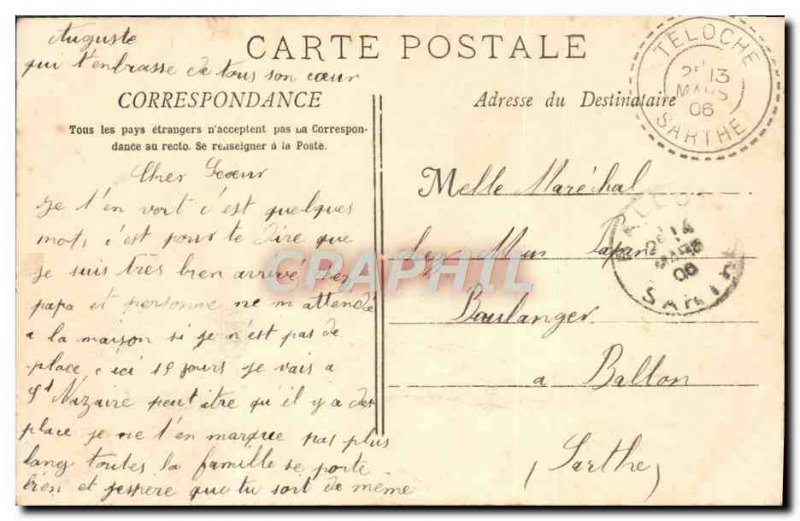 Auguste
qui t'enbrasse de tous son cœur
CARTE POSTALE
CORRESPONDANCE
Tous les pays étrangers n'acceptent pas la Correspon-
dance au recto. Se renseigner à la Poste.
Cher Sœur
je t'en voit c'est quelques
mots c'est pour te dire que
je suis très bien arrive
papa et personne ne m attendé
a la maison si je n'est pas de
place d ici 15 jours je vais a
St Nazaire peut être qu'il y a des
place je ne t'en marque pas plus
lang toutes la famille se porte
bien et jespere que tu sort de même
Adresse du Destinataire
Melle Maréchal
chez Mr Papin
Boulanger
a Ballon
(Sarthe)
TELOCHE
13
MARS
06
SARTHE
BALLON
14
MARS
06
SARTHE
CPAPHIL